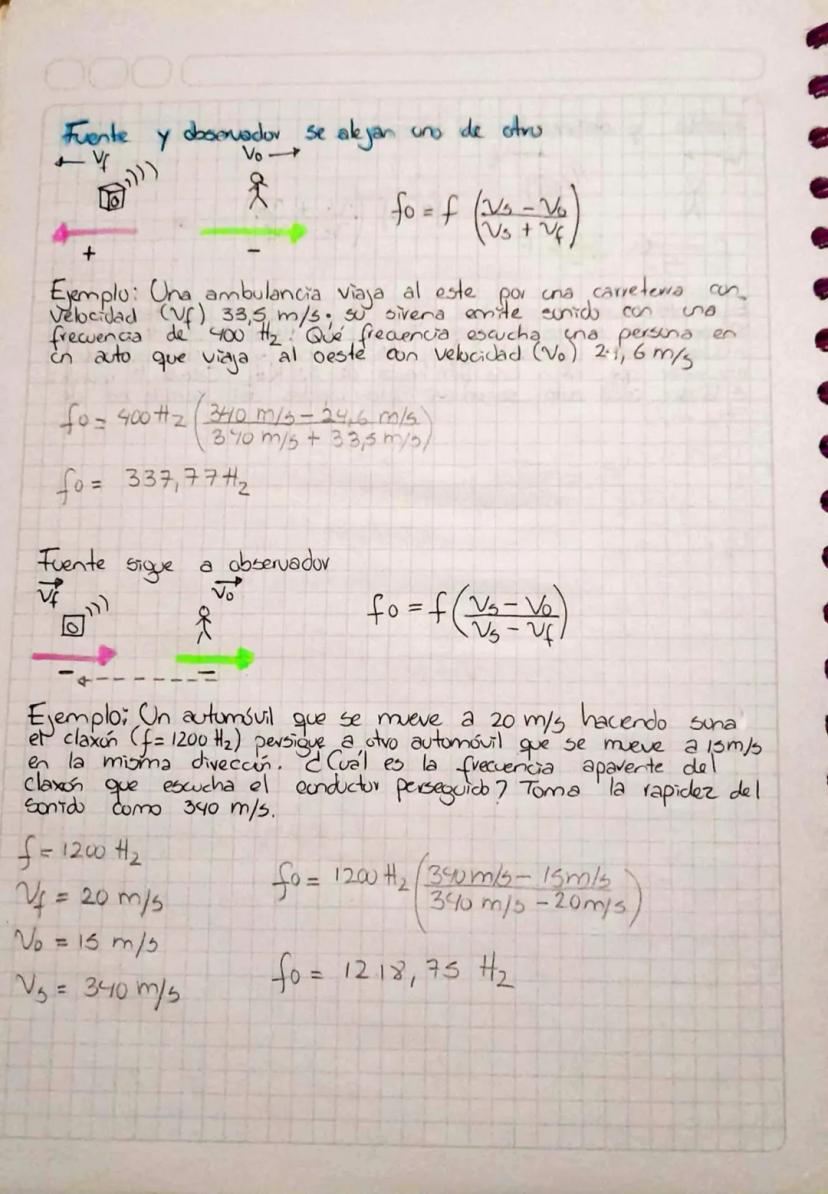 Fuente y observador se alejan uno de otro
← Vf
Vo →
fo = f (Vs - Vo / Vs + Vf)
+ -
Ejemplo: Una ambulancia viaja al este por una carretera con
velocidad (Vf) 33,5 m/s; su sirena emite sonido con una
frecuencia de 400 Hz. Qué frecuencia escucha una persona en
un auto que viaja al oeste con velocidad (Vo) 24,6 m/s
fo = 400 Hz (340 m/s - 24,6 m/s / 340 m/s + 33,5 m/s)
fo = 337,77 Hz
Fuente sigue a observador
Vf
Vo
fo = f (Vs - Vo / Vs - Vf)
- -
Ejemplo: Un automóvil que se mueve a 20 m/s haciendo sona
el claxón (f = 1200 Hz) persigue a otro automóvil que se mueve a 15m/s
en la misma direccín. ¿Cuál es la frecuencia aparente del
claxón que escucha el conductor perseguido? Toma la rapidez del
sonido como 340 m/s.
f = 1200 Hz
Vf = 20 m/s
Vo = 15 m/s
Vs = 340 m/s
fo = 1200 Hz (340 m/s - 15m/s / 340 m/s - 20m/s)
fo = 1218,75 Hz